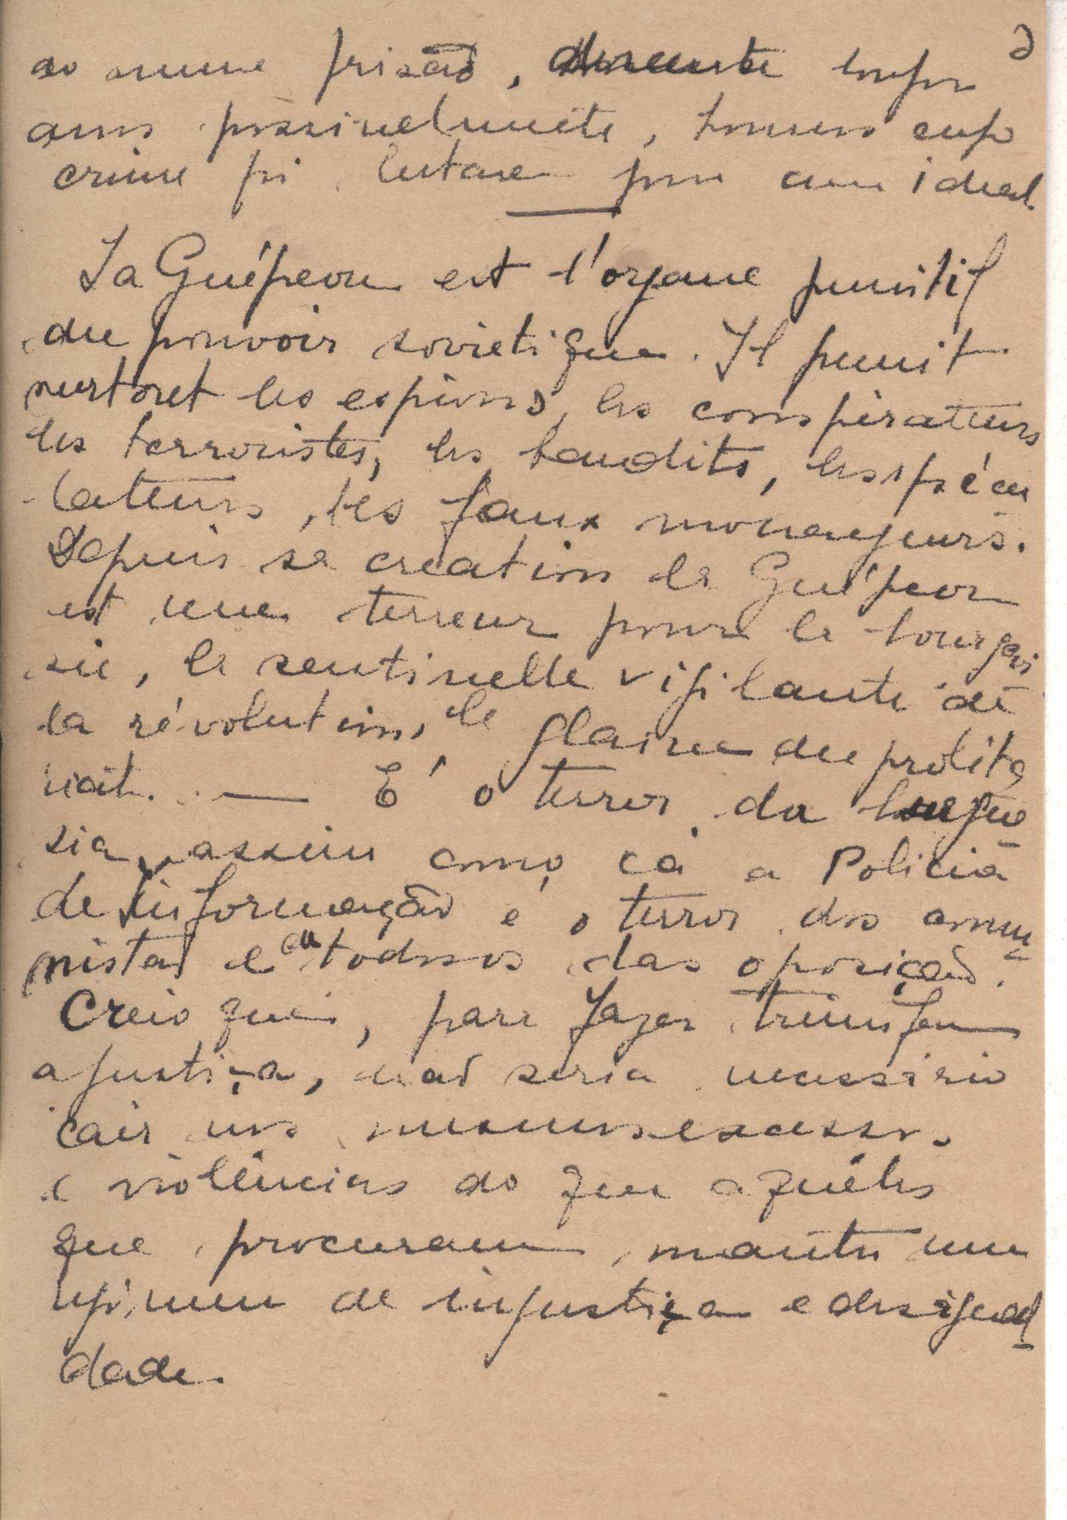 numa prisão, durante longos
anos possivelmente, homens cujo
crime foi lutarem por um ideal.
La Guépeou est l'organe punitif
du pouvoir sovietique. Il punit
surtout les espions, les conspirateurs
les terroristes, les bandits, les spécu
lateurs, les faux monnayeurs.
Depuis sa creation la Guépeou
est une terreur pour la bourgeoi
sie, la sentinelle vigilante de
la révolution, le glaive du proléta
riat. — É o terror da burgue
sia, assim como cá a Policia
de Informação é o terror dos comu
nistas e em todos os da oposição.
Creio que, para fazer triunfar
a justiça, não seria necessário
cair nos mesmos excessos
e violências do que aquêles
que procuram manter um
regimen de injustiça e desigual
dade.